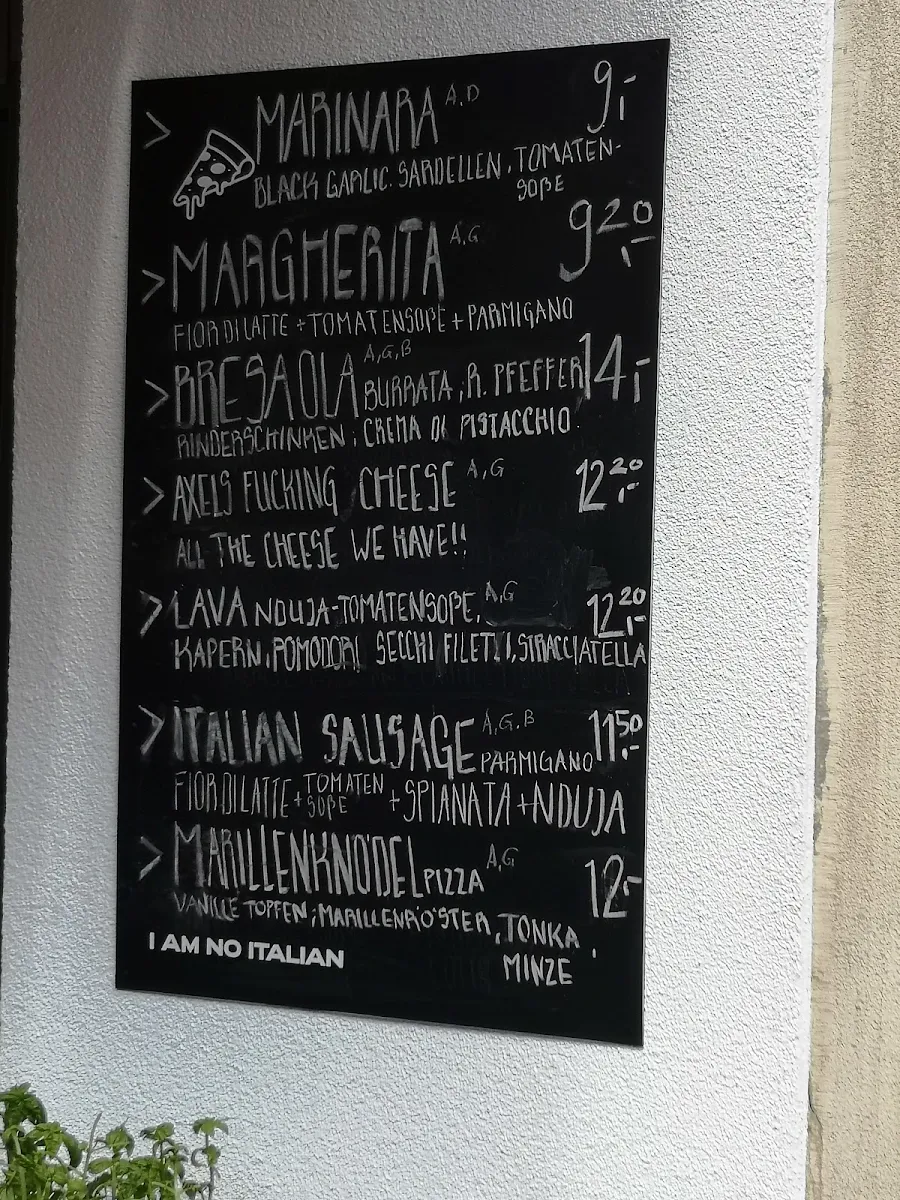 > MARINARA A,D 9,-
BLACK GARLIC. SARDELLEN, TOMATEN-
SOßE
> MARGHERITA A,G 9 20,-
FIOR DI LATTE + TOMATENSOßE + PARMIGANO
> BRESAOLA A,G,B BURRATA, R. PFEFFER 14,-
RINDERSCHINKEN, CREMA DI PISTACCHIO
> AXELS FUCKING CHEESE A,G 12 20,-
ALL THE CHEESE WE HAVE!!
> LAVA NDUJA-TOMATENSOßE, A,G 12 20,-
KAPERN, POMODORI SECCHI FILETTI, STRACCIATELLA
> ITALIAN SAUSAGE A,G,B PARMIGANO 11 50,-
FIOR DI LATTE + TOMATEN SOßE + SPIANATA + NDUJA
> MARILLENKNÖDEL PIZZA A,G 12,-
VANILLE TOPFEN, MARILLENRÖSTER, TONKA
MINZE
I AM NO ITALIAN